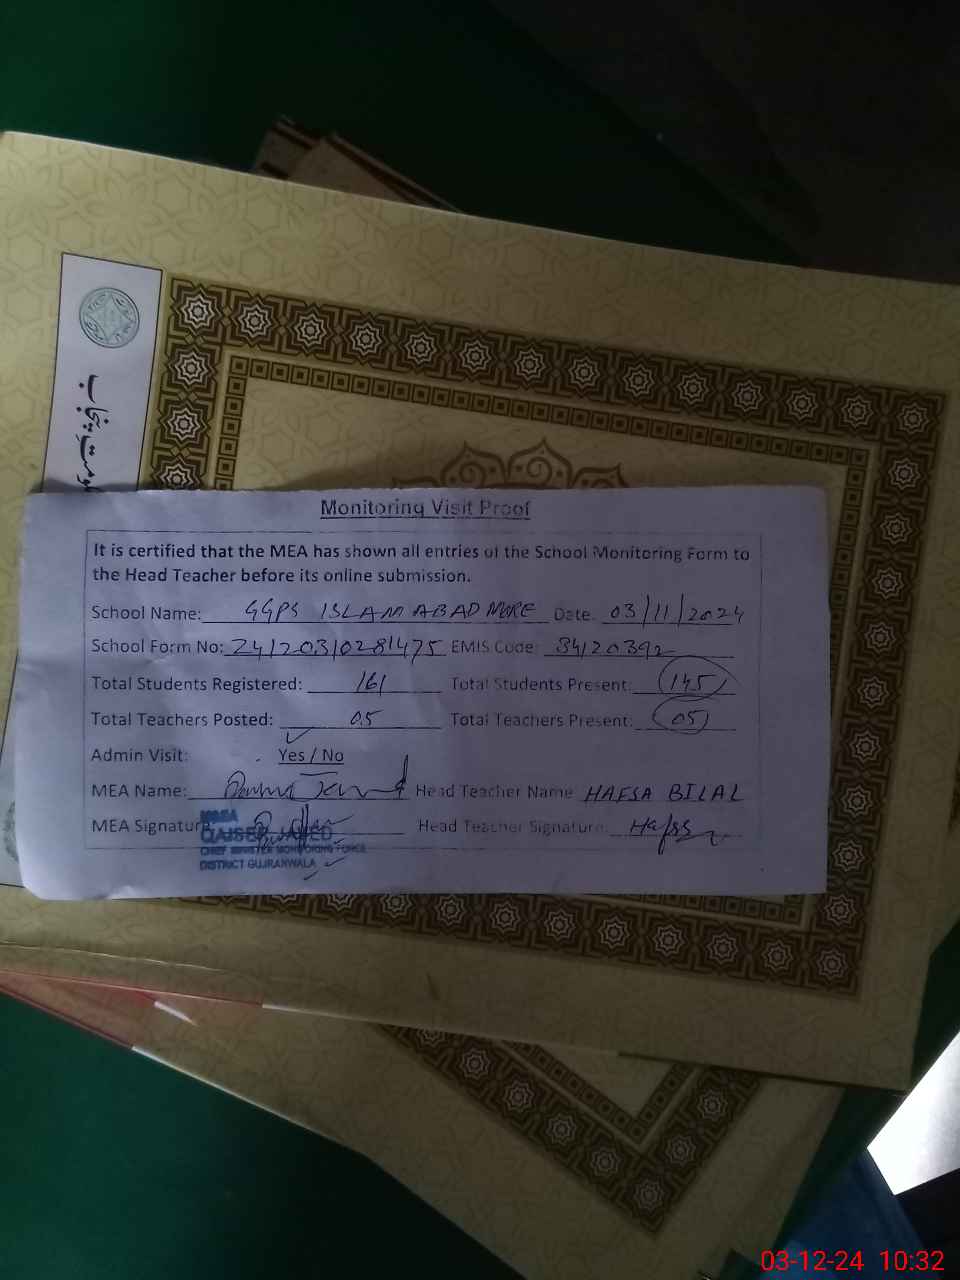 حکومتِ پنجاب
Monitoring Visit Proof
It is certified that the MEA has shown all entries of the School Monitoring Form to
the Head Teacher before its online submission.
School Name: GGPS ISLAMABAD MORE Date: 03/11/2024
School Form No: 24120310281475 EMIS Code: 34120392
Total Students Registered: 161 Total Students Present: 145
Total Teachers Posted: 05 Total Teachers Present: 05
Admin Visit: Yes / No
MEA Name: Head Teacher Name HAFSA BILAL
MEA Signature: Head Teacher Signature: Hafsa
MEA
QAISER JAVED
CHIEF MINISTER MONITORING FORCE
DISTRICT GUJRANWALA
03-12-24 10:32